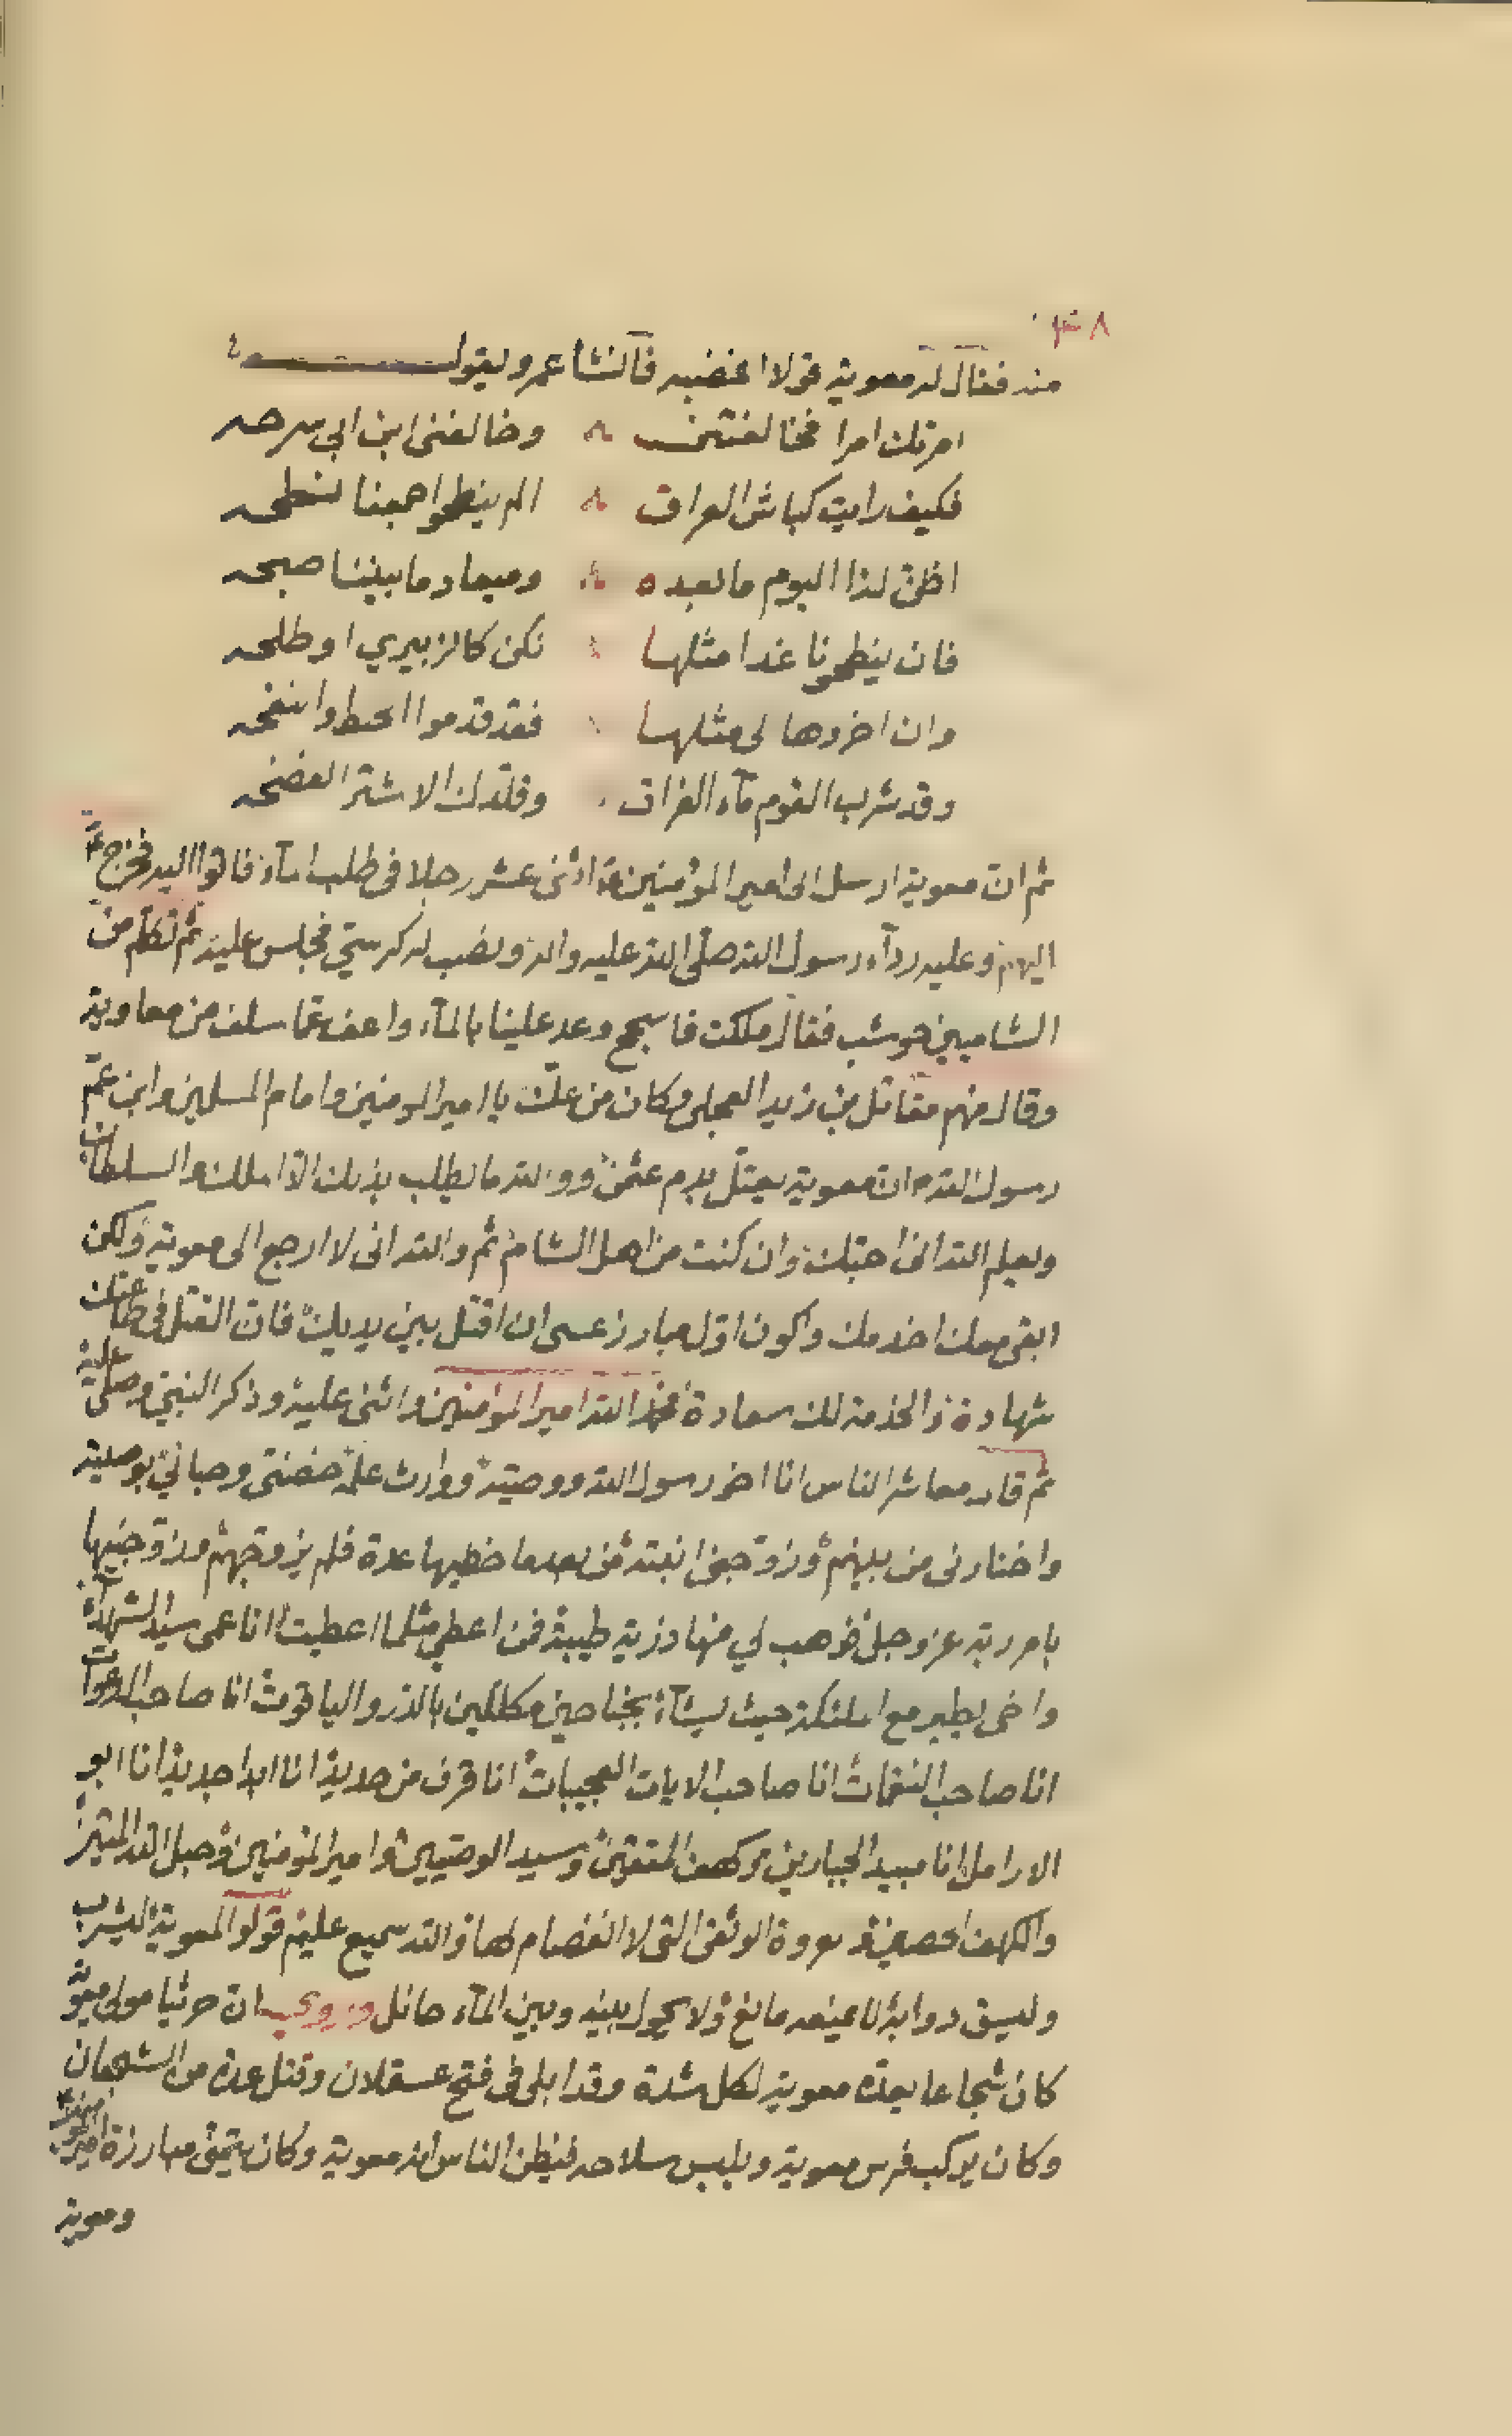 منه فقال له معوية قولا اغضبه فانشا عمرو يقول
امرتك امرا فخالفتنى وخالفنى ابن ابي سرحه
فكيف رايت كباش العراق الم ينطحوا جمعنا نطحه
اظن لذا اليوم ما بعده وميعاد ما بيننا صبحه
فان ينطحونا غدا مثلها نكن كالزبيري او طلحه
وان اخروها لى مثلها فقد قدموا الخبط والنفحه
وقد شرب القوم مآء الفرات وقلدك الاشتر الفضحه
ثم ان معوية ارسل الى امير المؤمنين اثنى عشر رجلا فى طلب المآء فاتوا اليه فخرج ع
اليهم وعليه ردآء رسول الله صلى الله عليه واله ونصب له كرسي فجلس عليه ثم تكلم من
الشاميين حوشب فقال ملكت فاسجح وعد علينا بالمآء واعف عما سلف من معاوية
وقال منهم مقاتل بن زيد العجلى وكان من عك يا امير المومنين وامام المسلمين وابن عم
رسول الله ان معوية يعتل بدم عثمن ووالله ما يطلب بذلك الا الملك والسلطان
ويعلم الله انى احبك وان كنت من اهل الشام ثم والله انى لا ارجع الى معوية ولكن
ابقى معك اخدمك واكون اول مبارز عسى ان اقتل بين يديك فان القتل فى طاعتك
شهادة والخدمة لك سعادة فحمد الله امير المؤمنين واثنى عليه وذكر النبي وصلى عليه
ثم قال معاشر الناس انا اخو رسول الله ووصيه ووارث علمه خصنى وحباني بوصيته
واختارنى من بينهم وزوجنى ابنته من بعد ما خطبها عدة فلم يزوجهم وزوجنيها
بامر ربه عز وجل فوهب لي منها ذرية طيبة فمن اعطي مثل ما اعطيت انا عمى سيد الشهدآء
واخى يطير مع الملئكة حيث يشآء بجناحين مكللين بالدر والياقوت انا صاحب الدعوات
انا صاحب النقمات انا صاحب الايات العجيبات انا قرن من حديد انا ابدا جديد انا ابو
الارامل انا مبيد الجبارين وكهف المتقين وسيد الوصيين وامير المؤمنين وحبل الله المتين
والكهف الحصين والعروة الوثقى التى لا انفصام لها والله سميع عليم قولوا لمعوية ليشرب
وليسق دوابه لا يمنعه مانع ولا يحول بينه وبين المآء حائل وروى ان حريثا مولى معوية
كان شجاعا يعده معوية لكل شدة وقد ابلى فى فتح عسقلان وقتل عدة من الشجعان
وكان يركب فرس معوية ويلبس سلاحه فيظن الناس انه معوية وكان يتمنى مبارزة امير المؤمنين
ومعوية